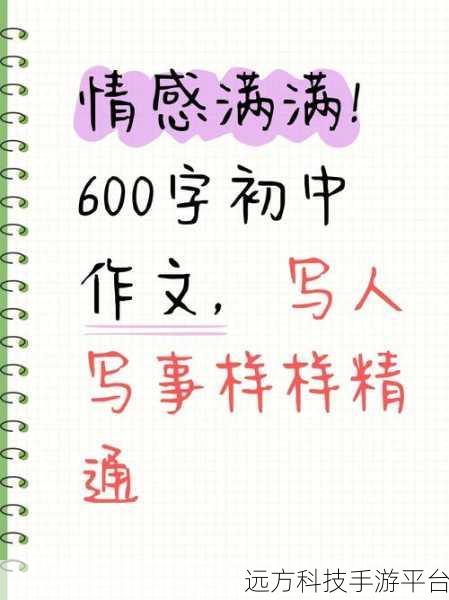 情感满满!
600字初中
作文,写人
写事样样精
通
远方科技手游平台